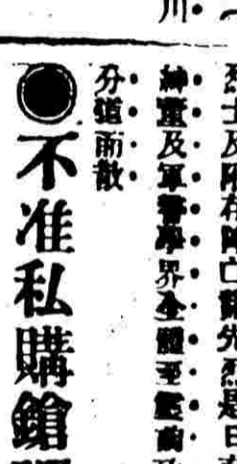 川
烈士及陣存陣亡諸先烈是日
紳董及軍警學界全體至
分道而散
●不准私購鎗